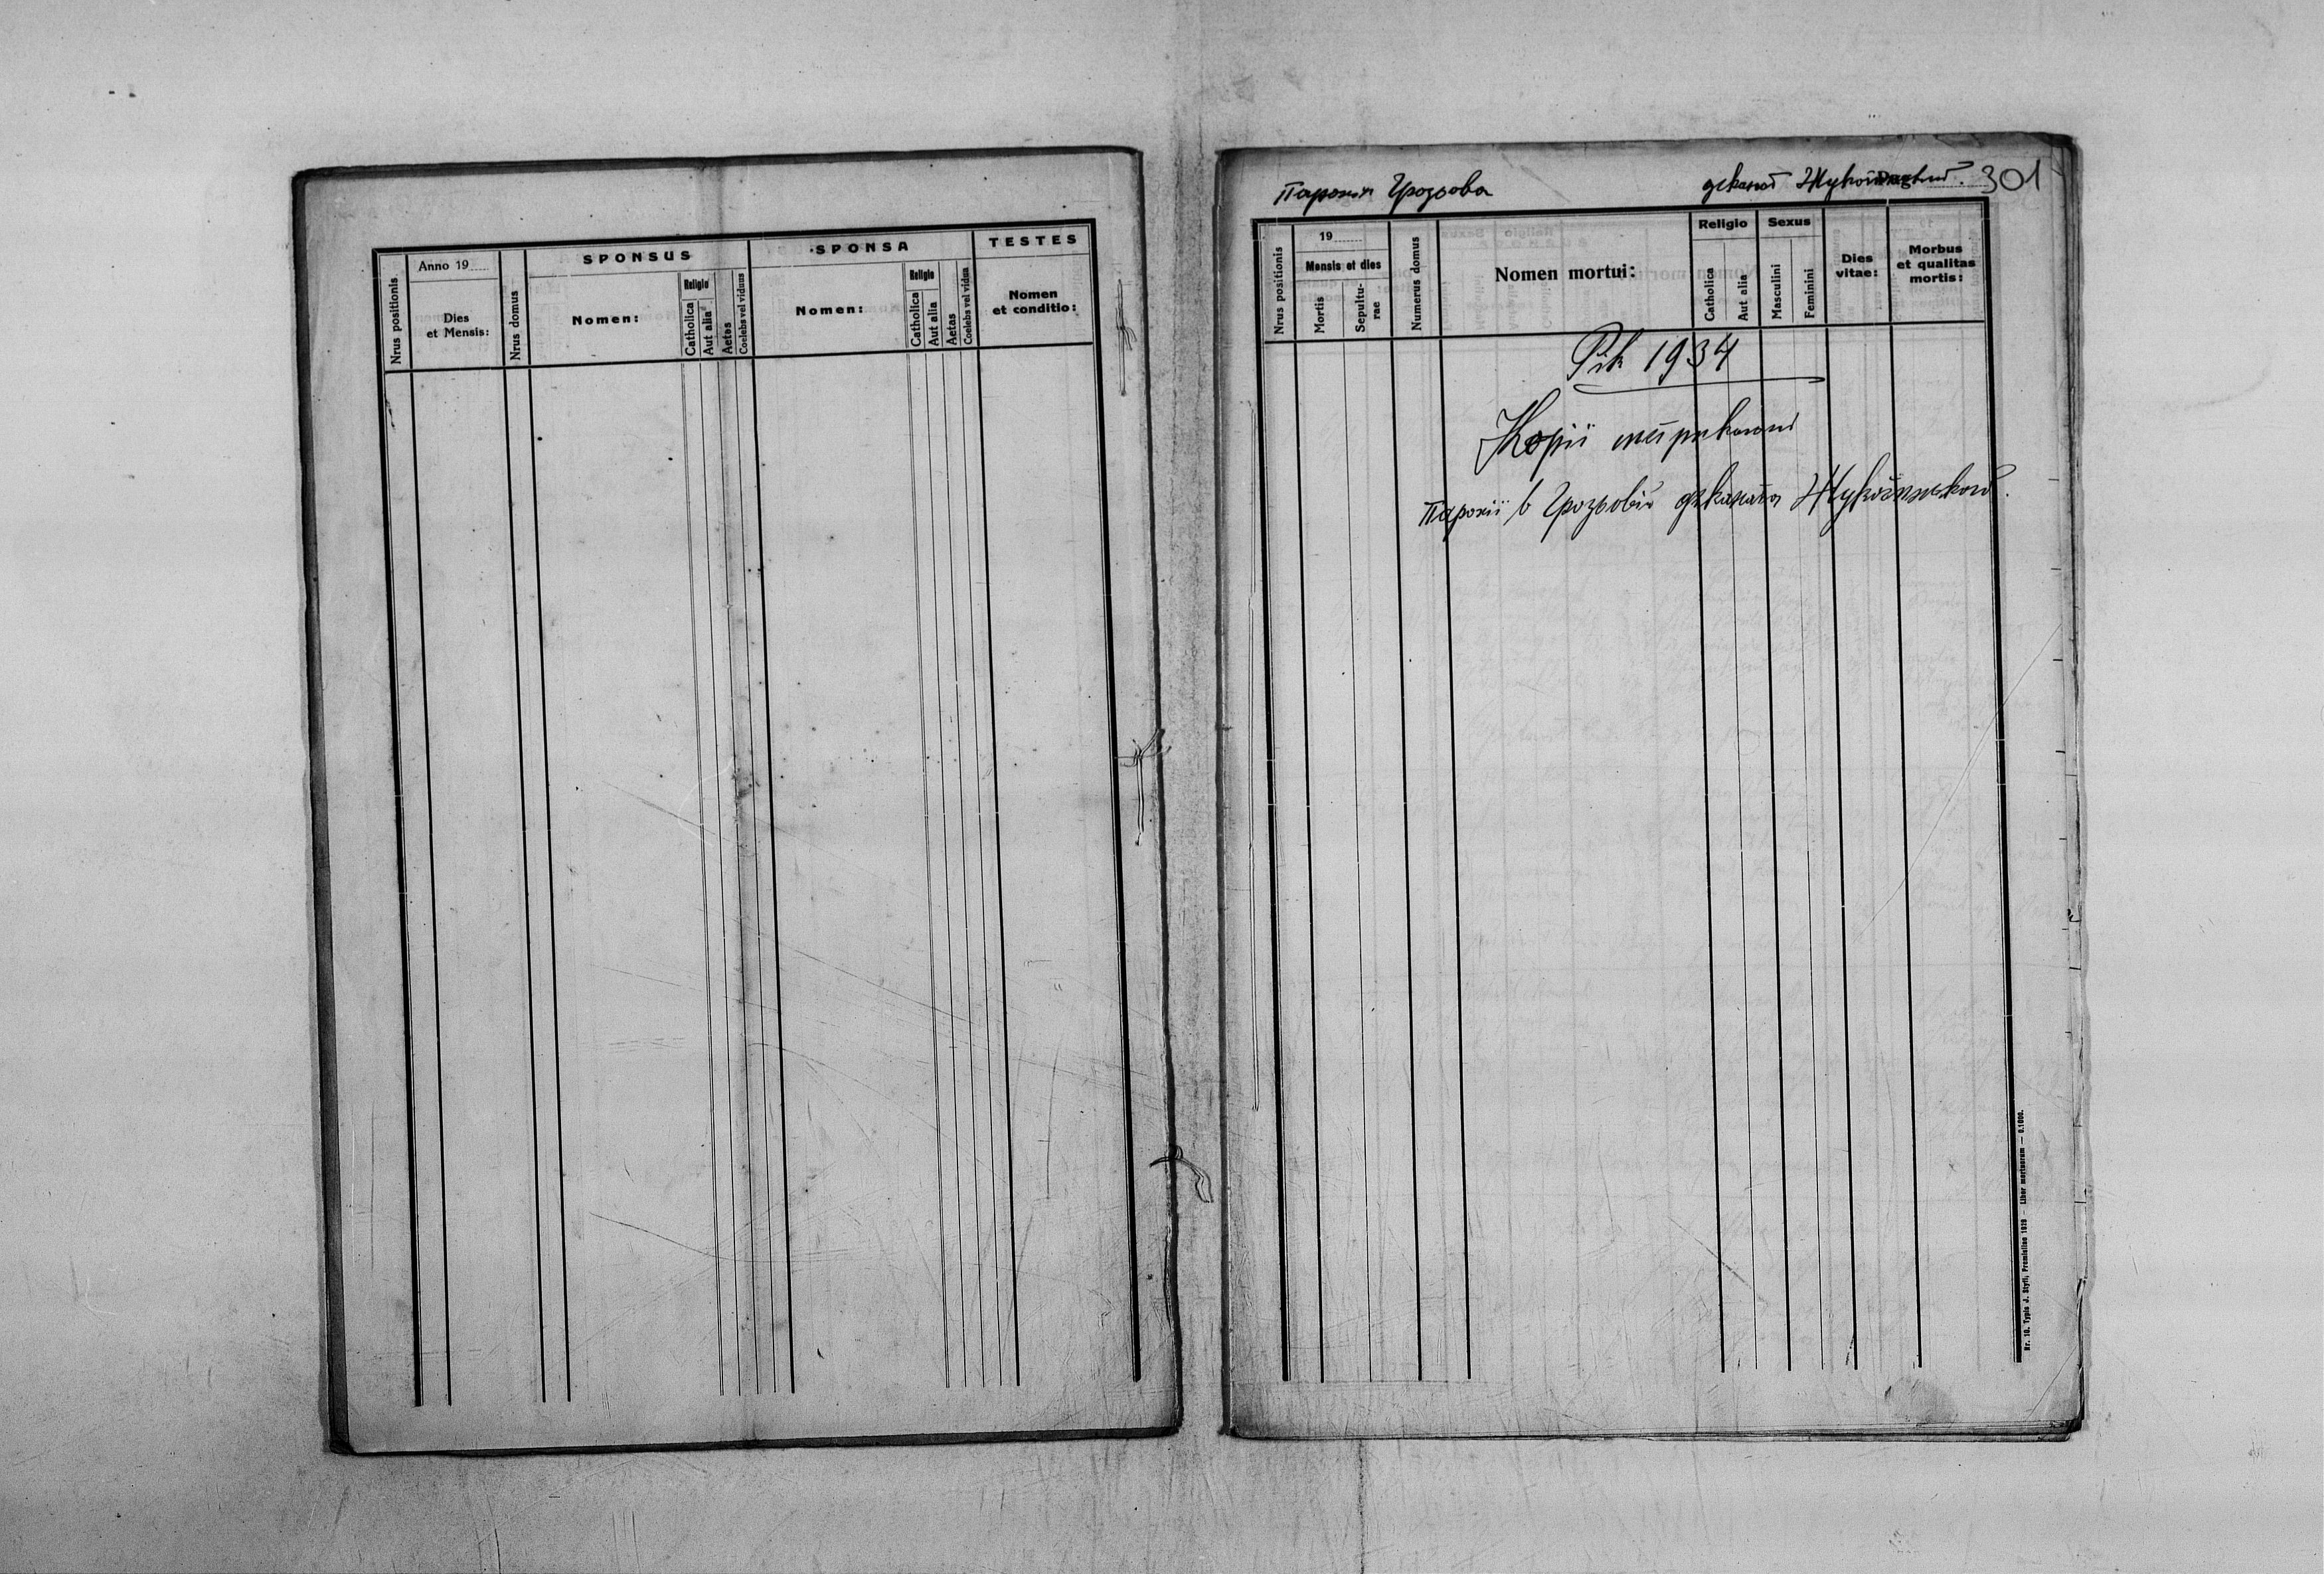 SPONSUS
SPONSA
TESTES
Nrus positionis
Anno 19
Dies
et Mensis:
Nrus domus
Nomen:
Religio
Catholica
Aut alia
Aetas
Coelebs vel viduus
Nomen:
Religio
Catholica
Aut alia
Aetas
Coelebs vel vidua
Nomen
et conditio:
Парохія Грозьова деканат 301
Nrus positionis
19
Mensis et dies
Mortis
Sepultu-
rae
Numerus domus
Nomen mortui:
Religio
Catholica
Aut alia
Sexus
Masculini
Feminini
Dies
vitae:
Morbus
et qualitas
mortis:
Рік 1934
Копії метрикальні
парохії в Грозьовій деканата
Nr. 10. Typis J. Styfi, Premisliae 1929 — Liber mortuorum — 0.1000.